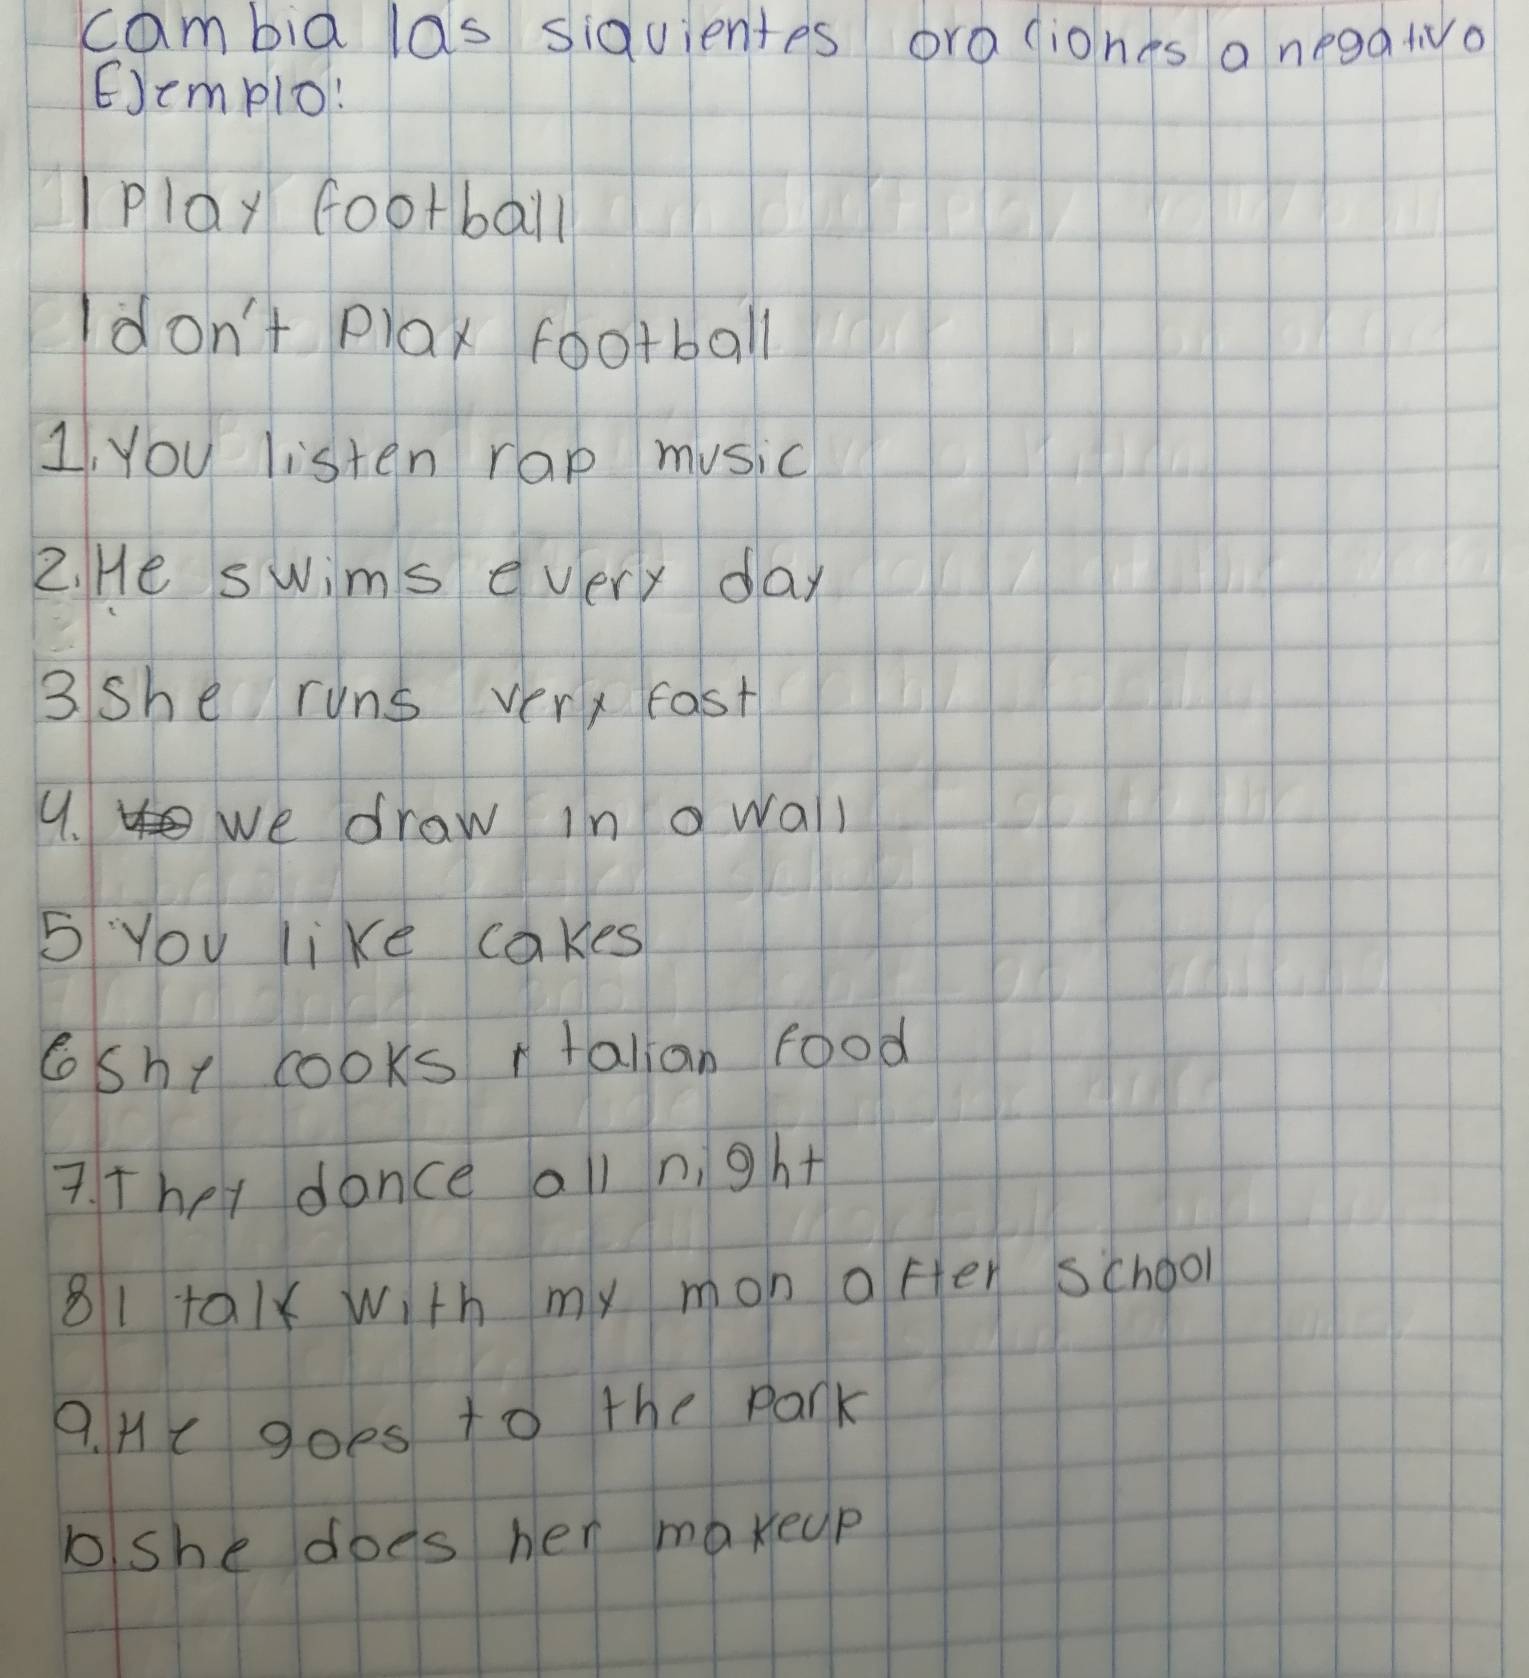 Cambia las siguientes oraciones a negativo
Ejemplo:
I play football
I don't play football
1. You listen rap music
2. He swims every day
3 She runs very fast
4. we draw in a wall
5 You like cakes
6 She cooks italian food
7. They dance all night
8 I talk with my mon after school
9. He goes to the park
10. She does her makeup